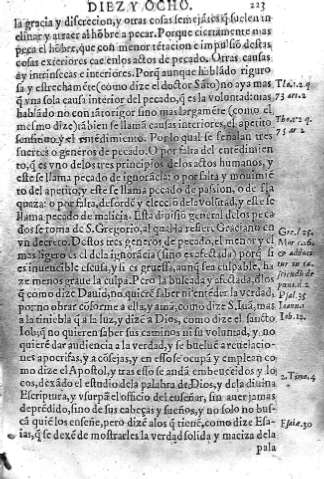 DIEZ Y OCHO. 223
la gracia y discrecion, y otras cosas semejãtes q̃ suelen in
clinar y atraer al hõbre a pecar. Porque ciertamente mas
peca el hõbre, que con menor tẽtacion e impulsiõ destas
cosas exteriores cae enlos actos de pecado. Otras causas
ay intrinsecas e interiores. Porq̃ aunque hablãdo riguro
sa y estrechamẽte (como dize el doctor Sãto) no aya mas
q̃ vna sola causa interior del pecado, q̃ es la voluntad: mas
hablãdo no con tãto rigor sino mas largamẽte (como el
mesmo dize) tãbien se llamã causas interiores, el apetito
sensitiuo y el entẽdimiento. Por lo qual se señalan tres
suertes o generos de pecado. O por falta del entẽdimien
to, q̃ es vno delos tres principios delos actos humanos, y
este se llama pecado de ignorãcia: o por falta y mouimiẽ
to del apetito, y este se llama pecado de passion, o de fla
queza: o por falta, desordẽ y eleciõ dela volũtad, y este se
llama pecado de malicia. Esta diuisiõ general delos peca
dos se toma de S. Gregorio, al qual la refiere Graciano en
vn decreto. Destos tres generos de pecado, el menor y el
mas ligero es el dela ignorãcia (sino es afectada) porq̃ si
es inuencible escusa, y si es gruessa, aunq̃ sea culpable, ha
ze menos graue la culpa. Pero la buscada y afectada, dlos
q̃ como dize Dauid, no quierẽ saber ni entẽder la verdad,
por no obrar cõforme a ella, y amã, como dize S. Iuã, mas
la tiniebla q̃ a la luz, y dizẽ a Dios, como dize el sancto
Iob, q̃ no quieren saber sus caminos ni su voluntad, y no
quierẽ dar audiencia a la verdad, y se bueluẽ a reuelacio-
nes apocrifas, y a cõsejas, y en esso se ocupã y emplean co
mo dize el Apostol, y tras esso se andã embeuecidos y lo
cos, dexãdo el estudio dela palabra de Dios, y dela diuina
Escriptura, y vsurpã el officio del enseñar, sin auer jamas
depredido, sino de sus cabeças y sueños, y no solo no bus-
cã quiẽ los enseñe, pero dizẽ alos q̃ tienẽ, como dize Esa-
ias, q̃ se dexẽ de mostrarles la verdad solida y maciza dela
pala
Tho. 1. 2. q.
75 ar. 2
Tho. 1. 2. q.
75 ar. 2
Psal. 35
Ioann. 3
Iob. 21.
2. Tim. 4
Esaiæ. 30